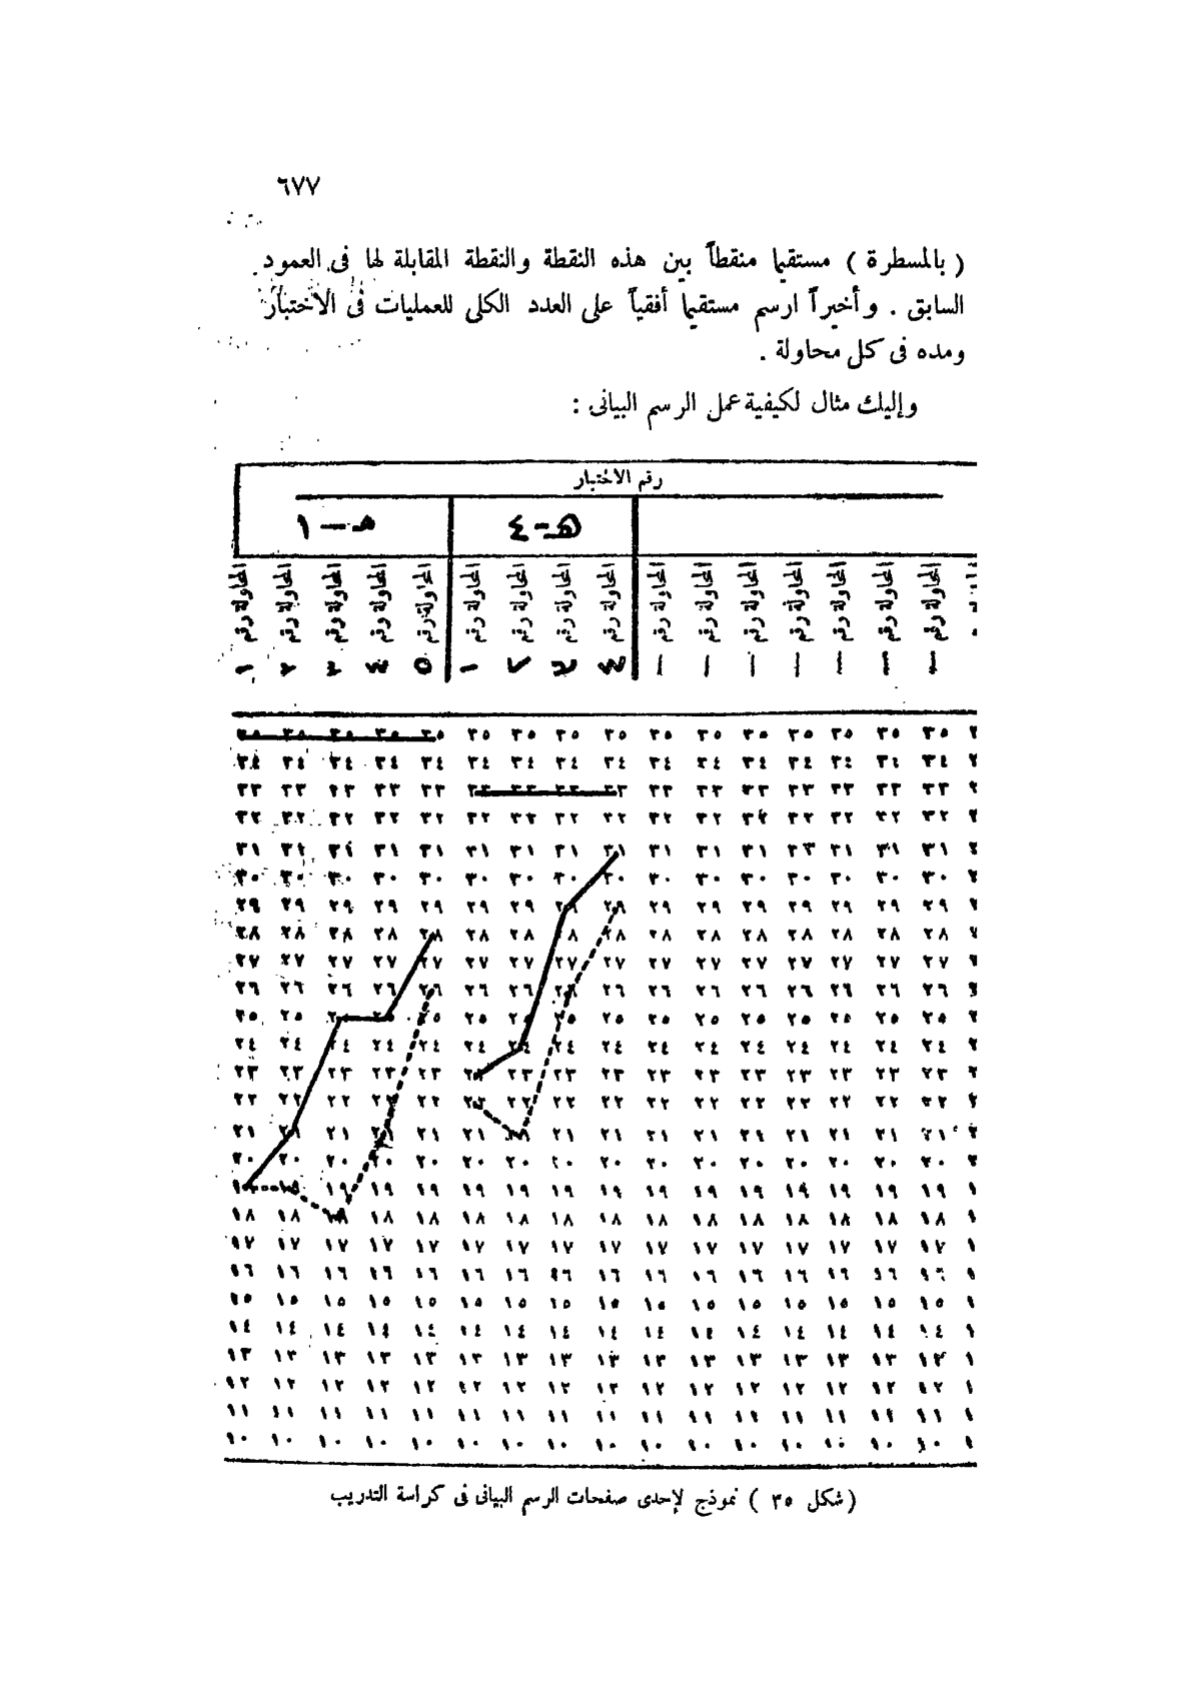 ٦٧٧
( بالمسطرة ) مستقيما منقطاً بين هذه النقطة والنقطة المقابلة لها فى العمود
السابق . وأخيراً ارسم مستقيما أفقياً على العدد الكلى للعمليات فى الاختبار
ومده فى كل محاولة .
وإليك مثال لكيفية عمل الرسم البيانى :
رقم الاختبار
هـ – ١ هـ – ٤
المحاولة رقم المحاولة رقم المحاولة رقم المحاولة رقم المحاولة رقم المحاولة رقم المحاولة رقم المحاولة رقم المحاولة رقم المحاولة رقم المحاولة رقم المحاولة رقم المحاولة رقم المحاولة رقم المحاولة رقم المحاولة رقم
١ ٢ ٣ ٤ ٥ ١ ٢ ٣ ٤ — — — — — — —
٣٥ ٣٥ ٣٥ ٣٥ ٣٥ ٣٥ ٣٥ ٣٥ ٣٥ ٣٥ ٣٥ ٣٥ ٣٥ ٣٥ ٣٥ ٣٥
٣٤ ٣٤ ٣٤ ٣٤ ٣٤ ٣٤ ٣٤ ٣٤ ٣٤ ٣٤ ٣٤ ٣٤ ٣٤ ٣٤ ٣٤ ٣٤
٣٣ ٣٣ ٣٣ ٣٣ ٣٣ ٣٣ ٣٣ ٣٣ ٣٣ ٣٣ ٣٣ ٣٣ ٣٣ ٣٣ ٣٣ ٣٣
٣٢ ٣٢ ٣٢ ٣٢ ٣٢ ٣٢ ٣٢ ٣٢ ٣٢ ٣٢ ٣٢ ٣٢ ٣٢ ٣٢ ٣٢ ٣٢
٣١ ٣١ ٣١ ٣١ ٣١ ٣١ ٣١ ٣١ ٣١ ٣١ ٣١ ٣١ ٣١ ٣١ ٣١ ٣١
٣٠ ٣٠ ٣٠ ٣٠ ٣٠ ٣٠ ٣٠ ٣٠ ٣٠ ٣٠ ٣٠ ٣٠ ٣٠ ٣٠ ٣٠ ٣٠
٢٩ ٢٩ ٢٩ ٢٩ ٢٩ ٢٩ ٢٩ ٢٩ ٢٩ ٢٩ ٢٩ ٢٩ ٢٩ ٢٩ ٢٩ ٢٩
٢٨ ٢٨ ٢٨ ٢٨ ٢٨ ٢٨ ٢٨ ٢٨ ٢٨ ٢٨ ٢٨ ٢٨ ٢٨ ٢٨ ٢٨ ٢٨
٢٧ ٢٧ ٢٧ ٢٧ ٢٧ ٢٧ ٢٧ ٢٧ ٢٧ ٢٧ ٢٧ ٢٧ ٢٧ ٢٧ ٢٧ ٢٧
٢٦ ٢٦ ٢٦ ٢٦ ٢٦ ٢٦ ٢٦ ٢٦ ٢٦ ٢٦ ٢٦ ٢٦ ٢٦ ٢٦ ٢٦ ٢٦
٢٥ ٢٥ ٢٥ ٢٥ ٢٥ ٢٥ ٢٥ ٢٥ ٢٥ ٢٥ ٢٥ ٢٥ ٢٥ ٢٥ ٢٥ ٢٥
٢٤ ٢٤ ٢٤ ٢٤ ٢٤ ٢٤ ٢٤ ٢٤ ٢٤ ٢٤ ٢٤ ٢٤ ٢٤ ٢٤ ٢٤ ٢٤
٢٣ ٢٣ ٢٣ ٢٣ ٢٣ ٢٣ ٢٣ ٢٣ ٢٣ ٢٣ ٢٣ ٢٣ ٢٣ ٢٣ ٢٣ ٢٣
٢٢ ٢٢ ٢٢ ٢٢ ٢٢ ٢٢ ٢٢ ٢٢ ٢٢ ٢٢ ٢٢ ٢٢ ٢٢ ٢٢ ٢٢ ٢٢
٢١ ٢١ ٢١ ٢١ ٢١ ٢١ ٢١ ٢١ ٢١ ٢١ ٢١ ٢١ ٢١ ٢١ ٢١ ٢١
٢٠ ٢٠ ٢٠ ٢٠ ٢٠ ٢٠ ٢٠ ٢٠ ٢٠ ٢٠ ٢٠ ٢٠ ٢٠ ٢٠ ٢٠ ٢٠
١٩ ١٩ ١٩ ١٩ ١٩ ١٩ ١٩ ١٩ ١٩ ١٩ ١٩ ١٩ ١٩ ١٩ ١٩ ١٩
١٨ ١٨ ١٨ ١٨ ١٨ ١٨ ١٨ ١٨ ١٨ ١٨ ١٨ ١٨ ١٨ ١٨ ١٨ ١٨
١٧ ١٧ ١٧ ١٧ ١٧ ١٧ ١٧ ١٧ ١٧ ١٧ ١٧ ١٧ ١٧ ١٧ ١٧ ١٧
١٦ ١٦ ١٦ ١٦ ١٦ ١٦ ١٦ ١٦ ١٦ ١٦ ١٦ ١٦ ١٦ ١٦ ١٦ ١٦
١٥ ١٥ ١٥ ١٥ ١٥ ١٥ ١٥ ١٥ ١٥ ١٥ ١٥ ١٥ ١٥ ١٥ ١٥ ١٥
١٤ ١٤ ١٤ ١٤ ١٤ ١٤ ١٤ ١٤ ١٤ ١٤ ١٤ ١٤ ١٤ ١٤ ١٤ ١٤
١٣ ١٣ ١٣ ١٣ ١٣ ١٣ ١٣ ١٣ ١٣ ١٣ ١٣ ١٣ ١٣ ١٣ ١٣ ١٣
١٢ ١٢ ١٢ ١٢ ١٢ ١٢ ١٢ ١٢ ١٢ ١٢ ١٢ ١٢ ١٢ ١٢ ١٢ ١٢
١١ ١١ ١١ ١١ ١١ ١١ ١١ ١١ ١١ ١١ ١١ ١١ ١١ ١١ ١١ ١١
١٠ ١٠ ١٠ ١٠ ١٠ ١٠ ١٠ ١٠ ١٠ ١٠ ١٠ ١٠ ١٠ ١٠ ١٠ ١٠
( شكل ٣٥ ) نموذج لإحدى صفحات الرسم البيانى فى كراسة التدريب